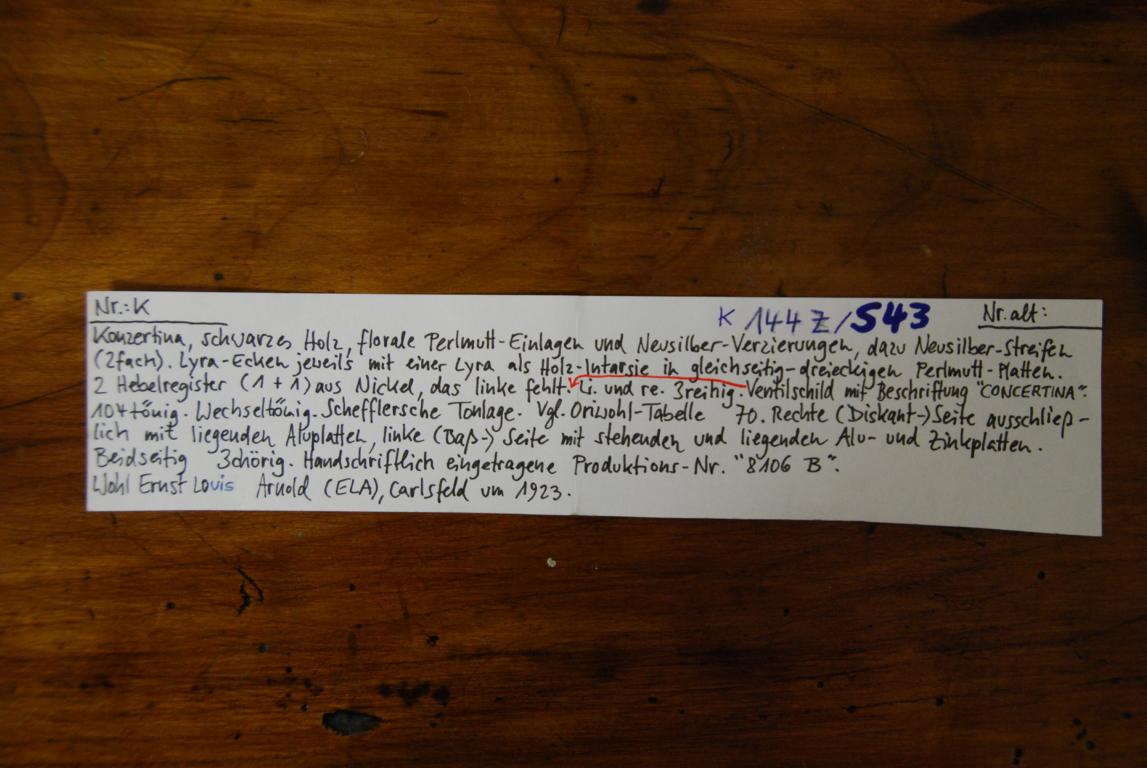 Nr.: K K 144 Z/543 Nr. alt:
Konzertina, schwarzes Holz, florale Perlmutt-Einlagen und Neusilber-Verzierungen, dazu Neusilber-Streifen
(2fach). Lyra-Ecken jeweils mit einer Lyra als Holz-Intarsie in gleichseitig-dreieckigen Perlmutt-Platten.
2 Hebelregister (1+1) aus Nickel, das linke fehlt. Li. und re. 3reihig. Ventilschild mit Beschriftung "CONCERTINA".
104tönig. Wechseltönig. Schefflersche Tonlage. Vgl. Oriwohl-Tabelle 70. Rechte (Diskant-) Seite ausschließ-
lich mit liegenden Aluplatten, linke (Baß-) Seite mit stehenden und liegenden Alu- und Zinkplatten.
Beidseitig 3chörig. Handschriftlich eingetragene Produktions-Nr. "8106 B".
Wohl Ernst Louis Arnold (ELA), Carlsfeld um 1923.